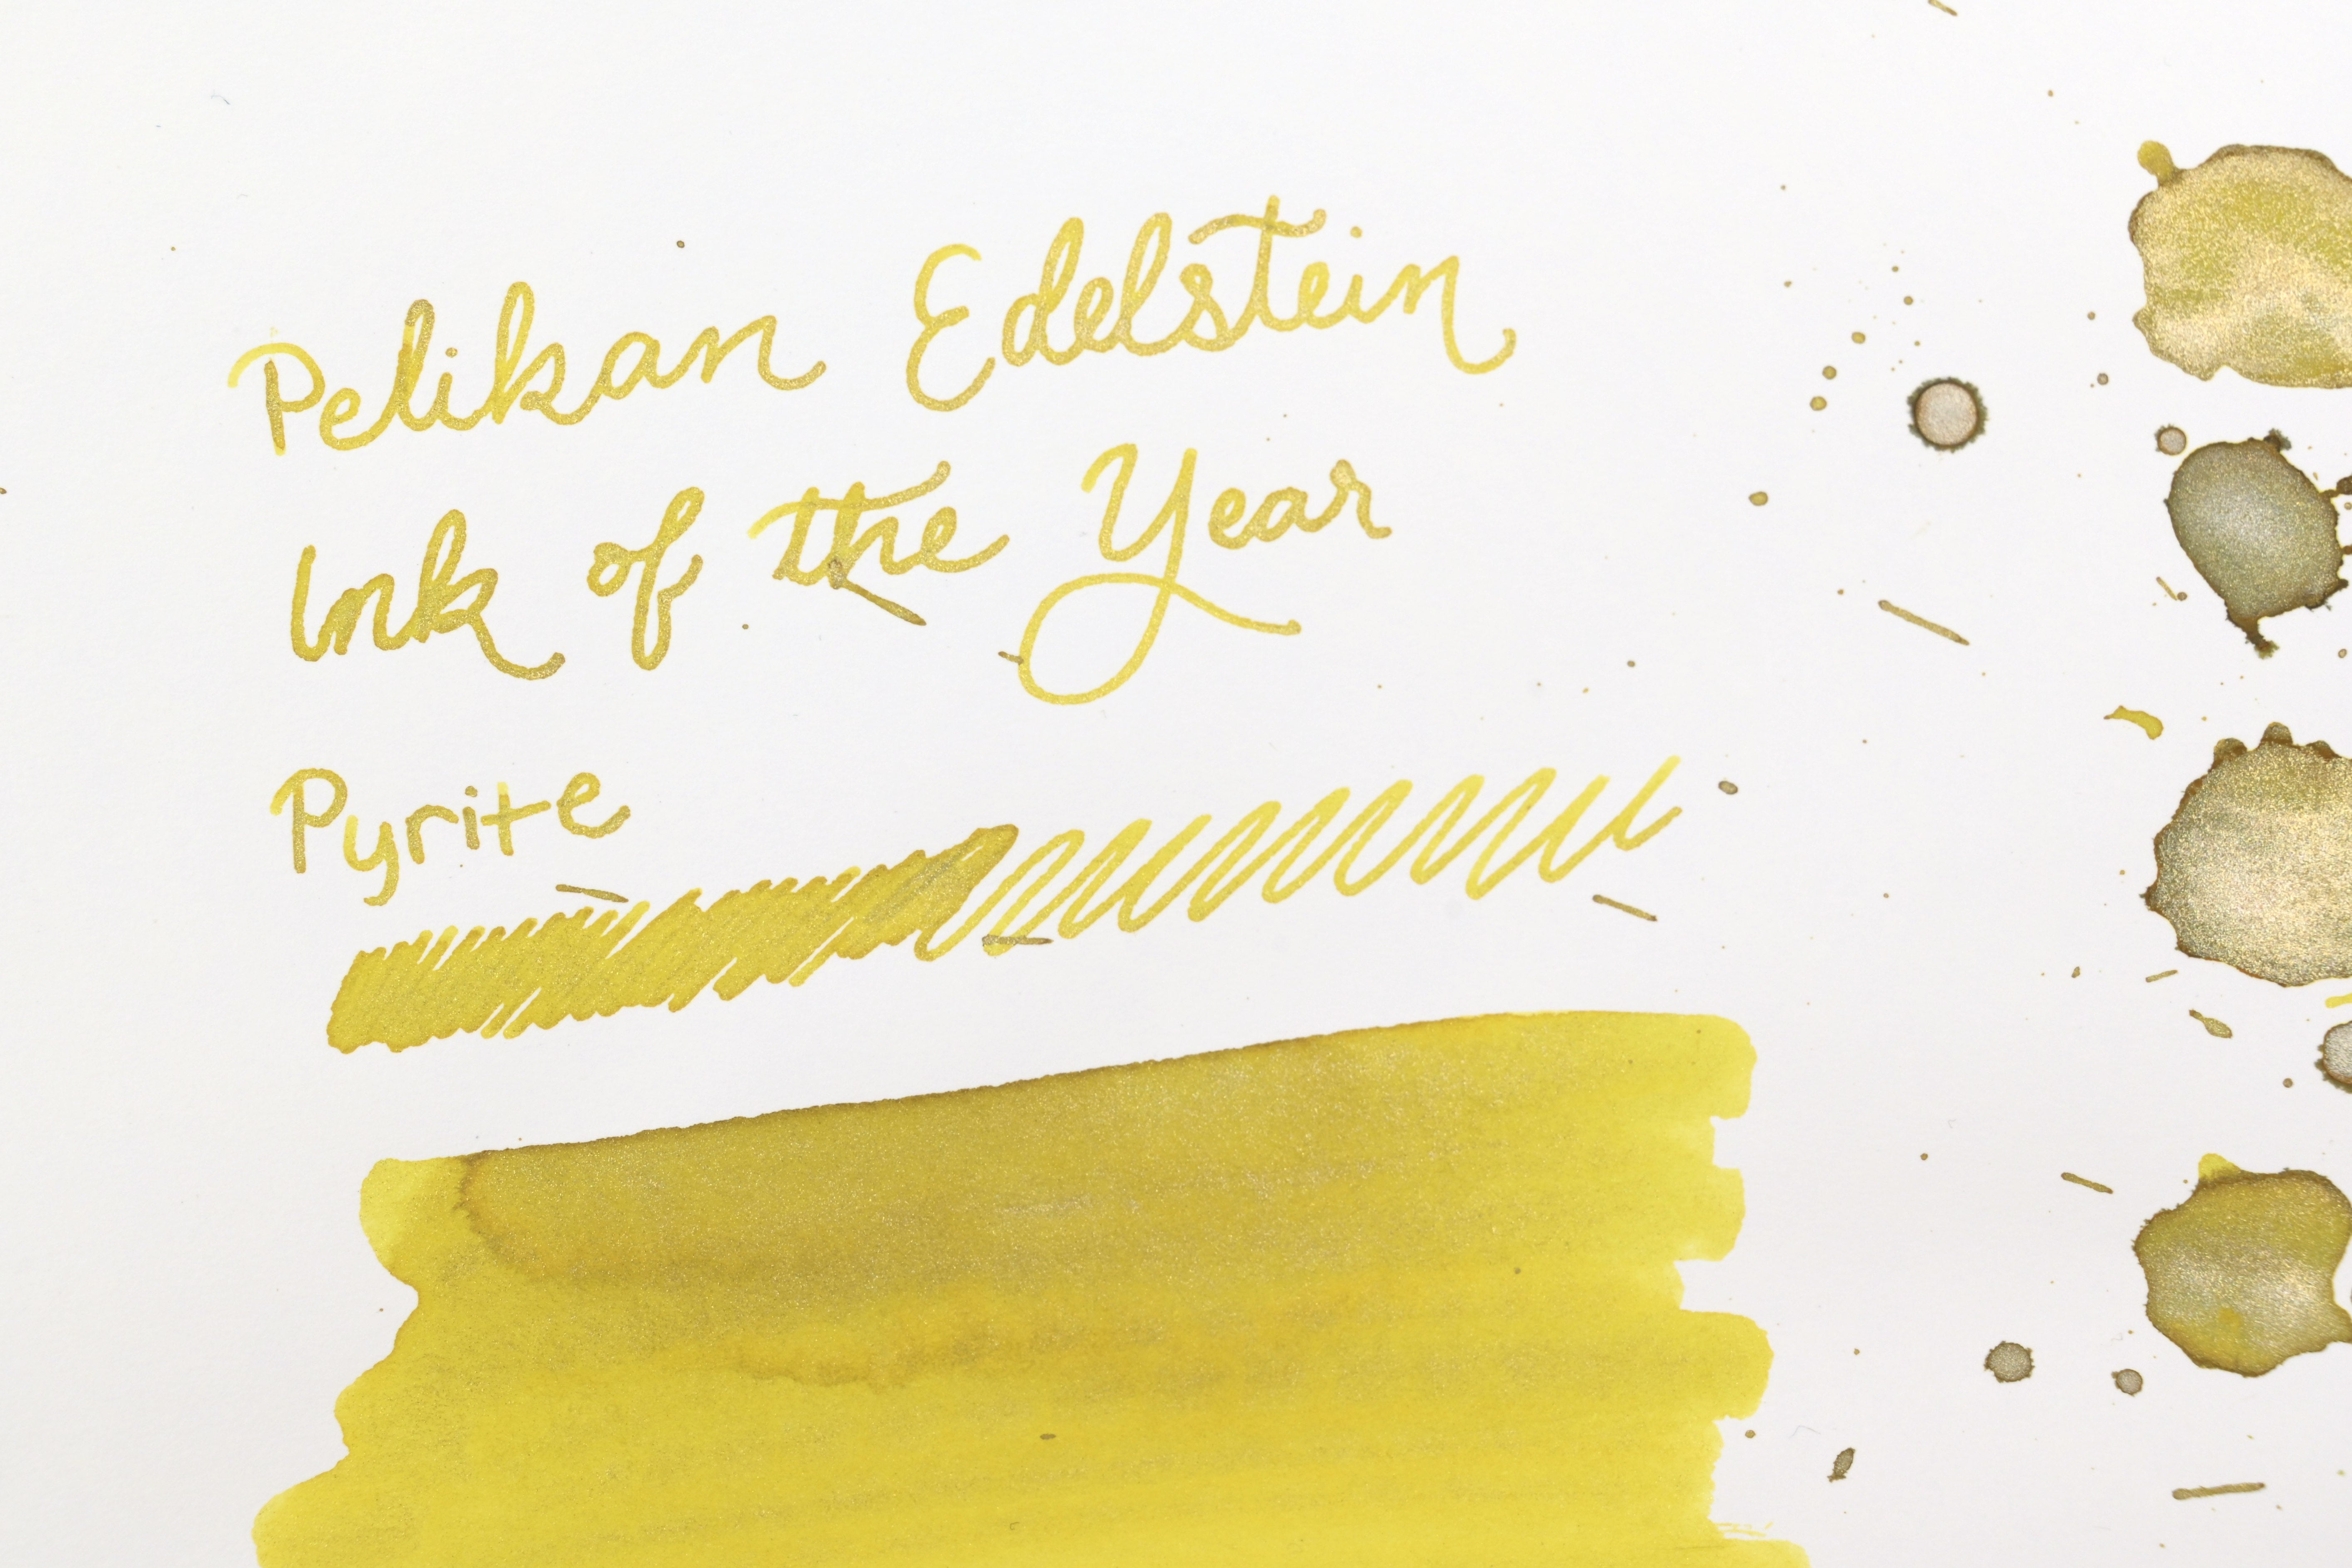 Pelikan Edelstein
Ink of the Year
Pyrite